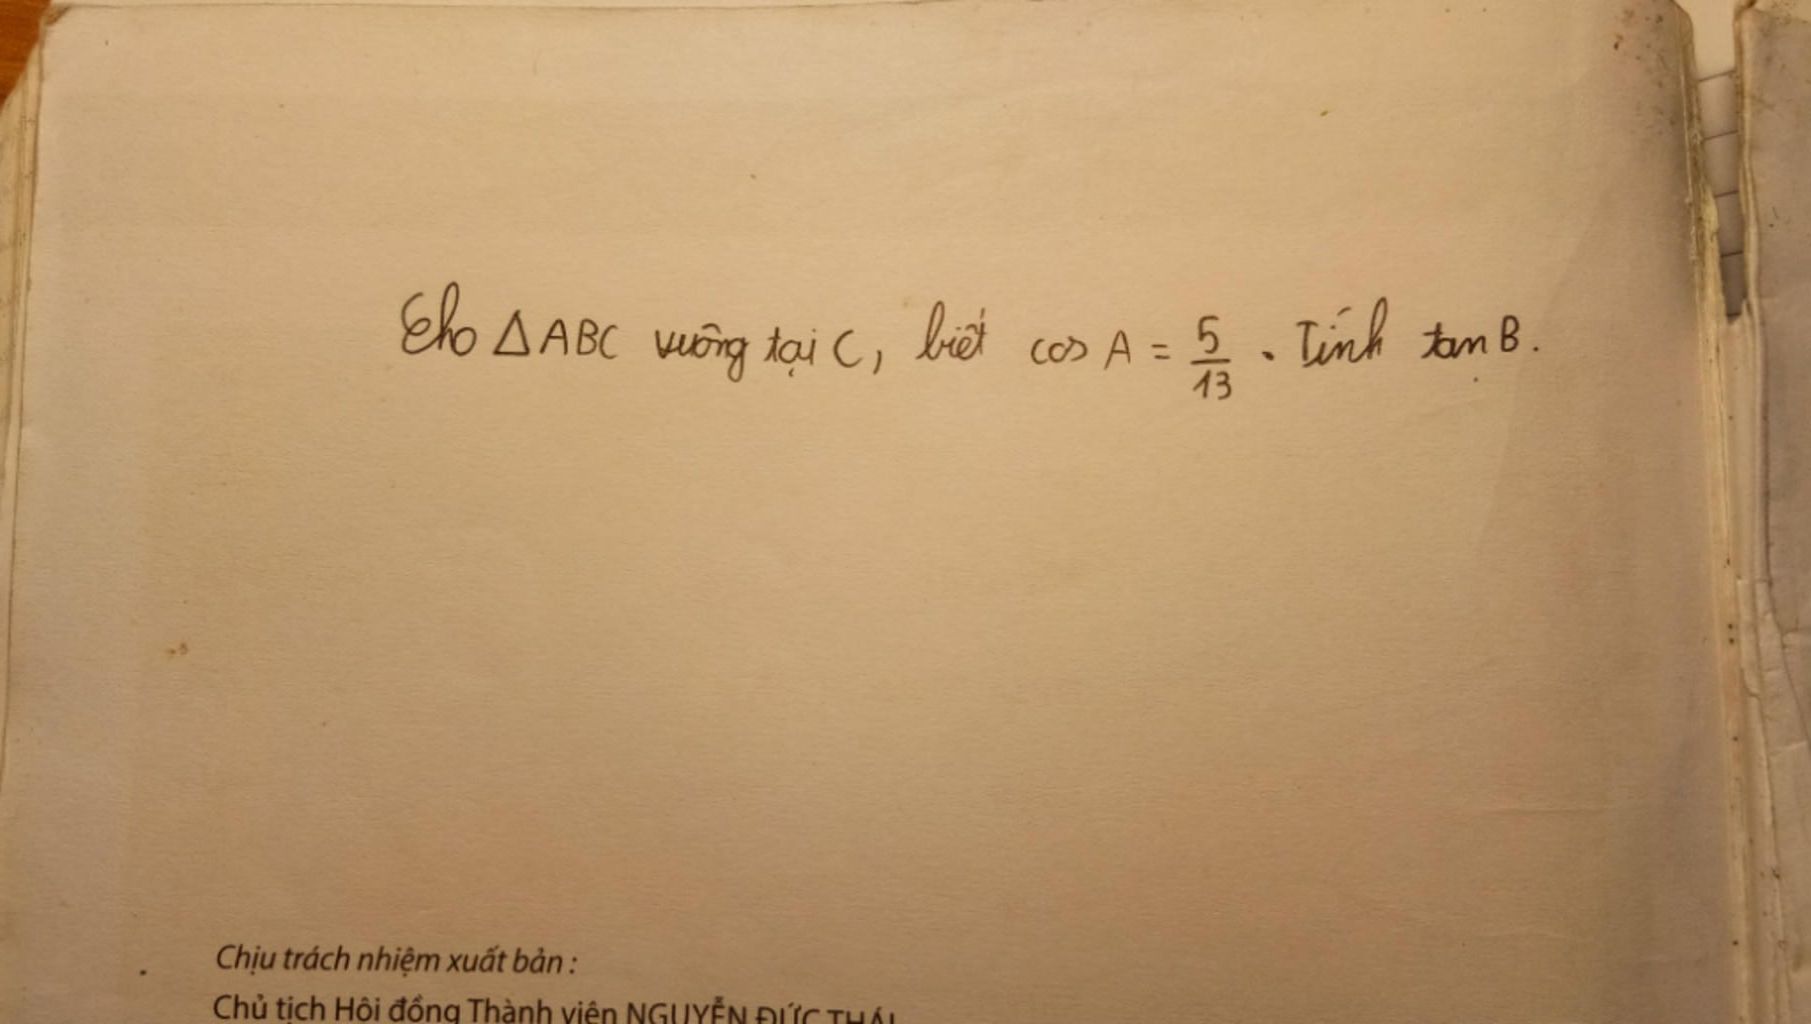 Cho △ABC vuông tại C, biết cos A = 5/13 . Tính tan B.
Chịu trách nhiệm xuất bản :
Chủ tịch Hội đồng Thành viên NGUYỄN ĐỨC THÁI